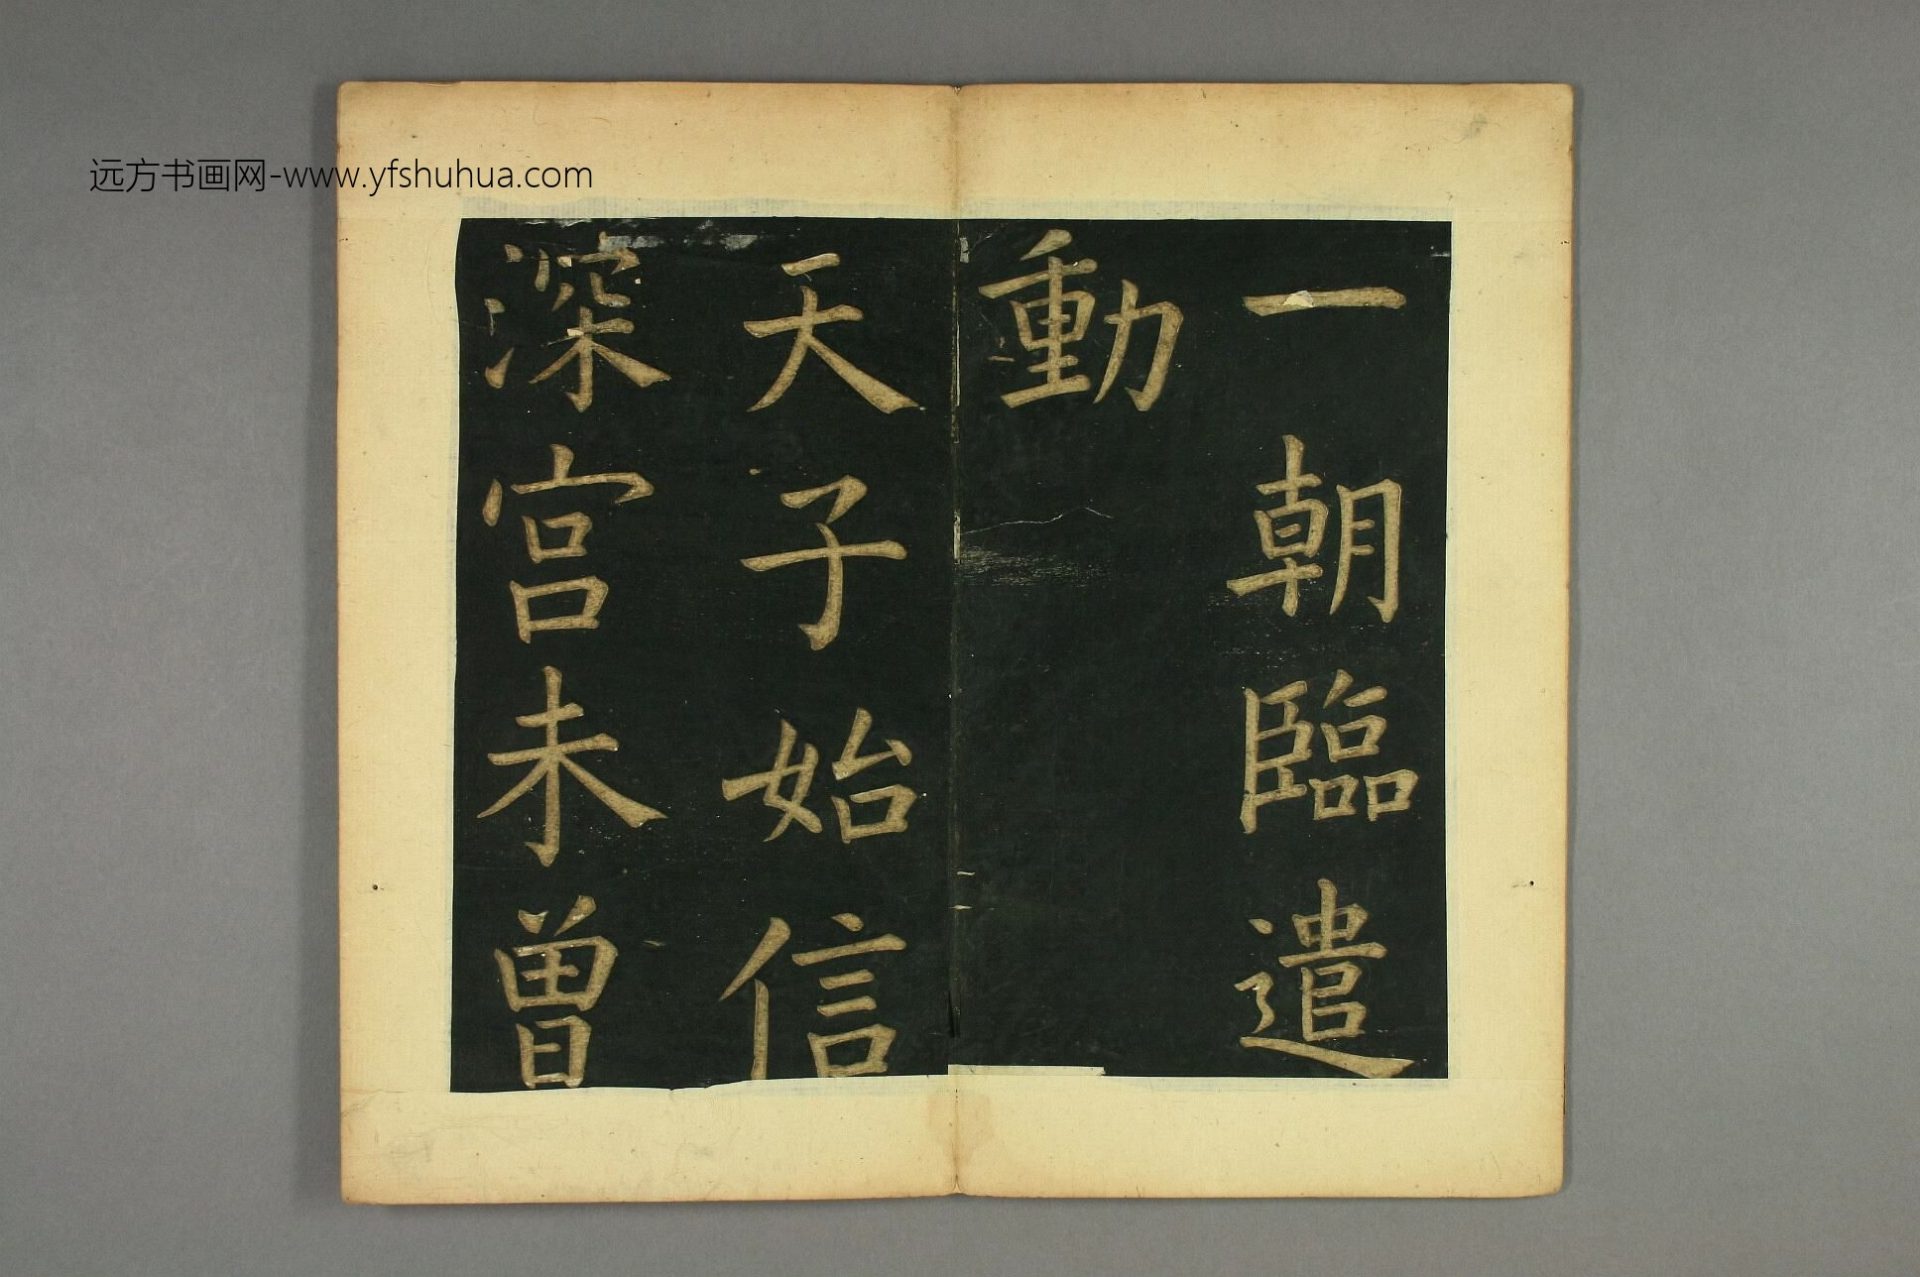 远方书画网-www.yfshuhua.com
一朝臨遣
動
天子始信
深宮未曾